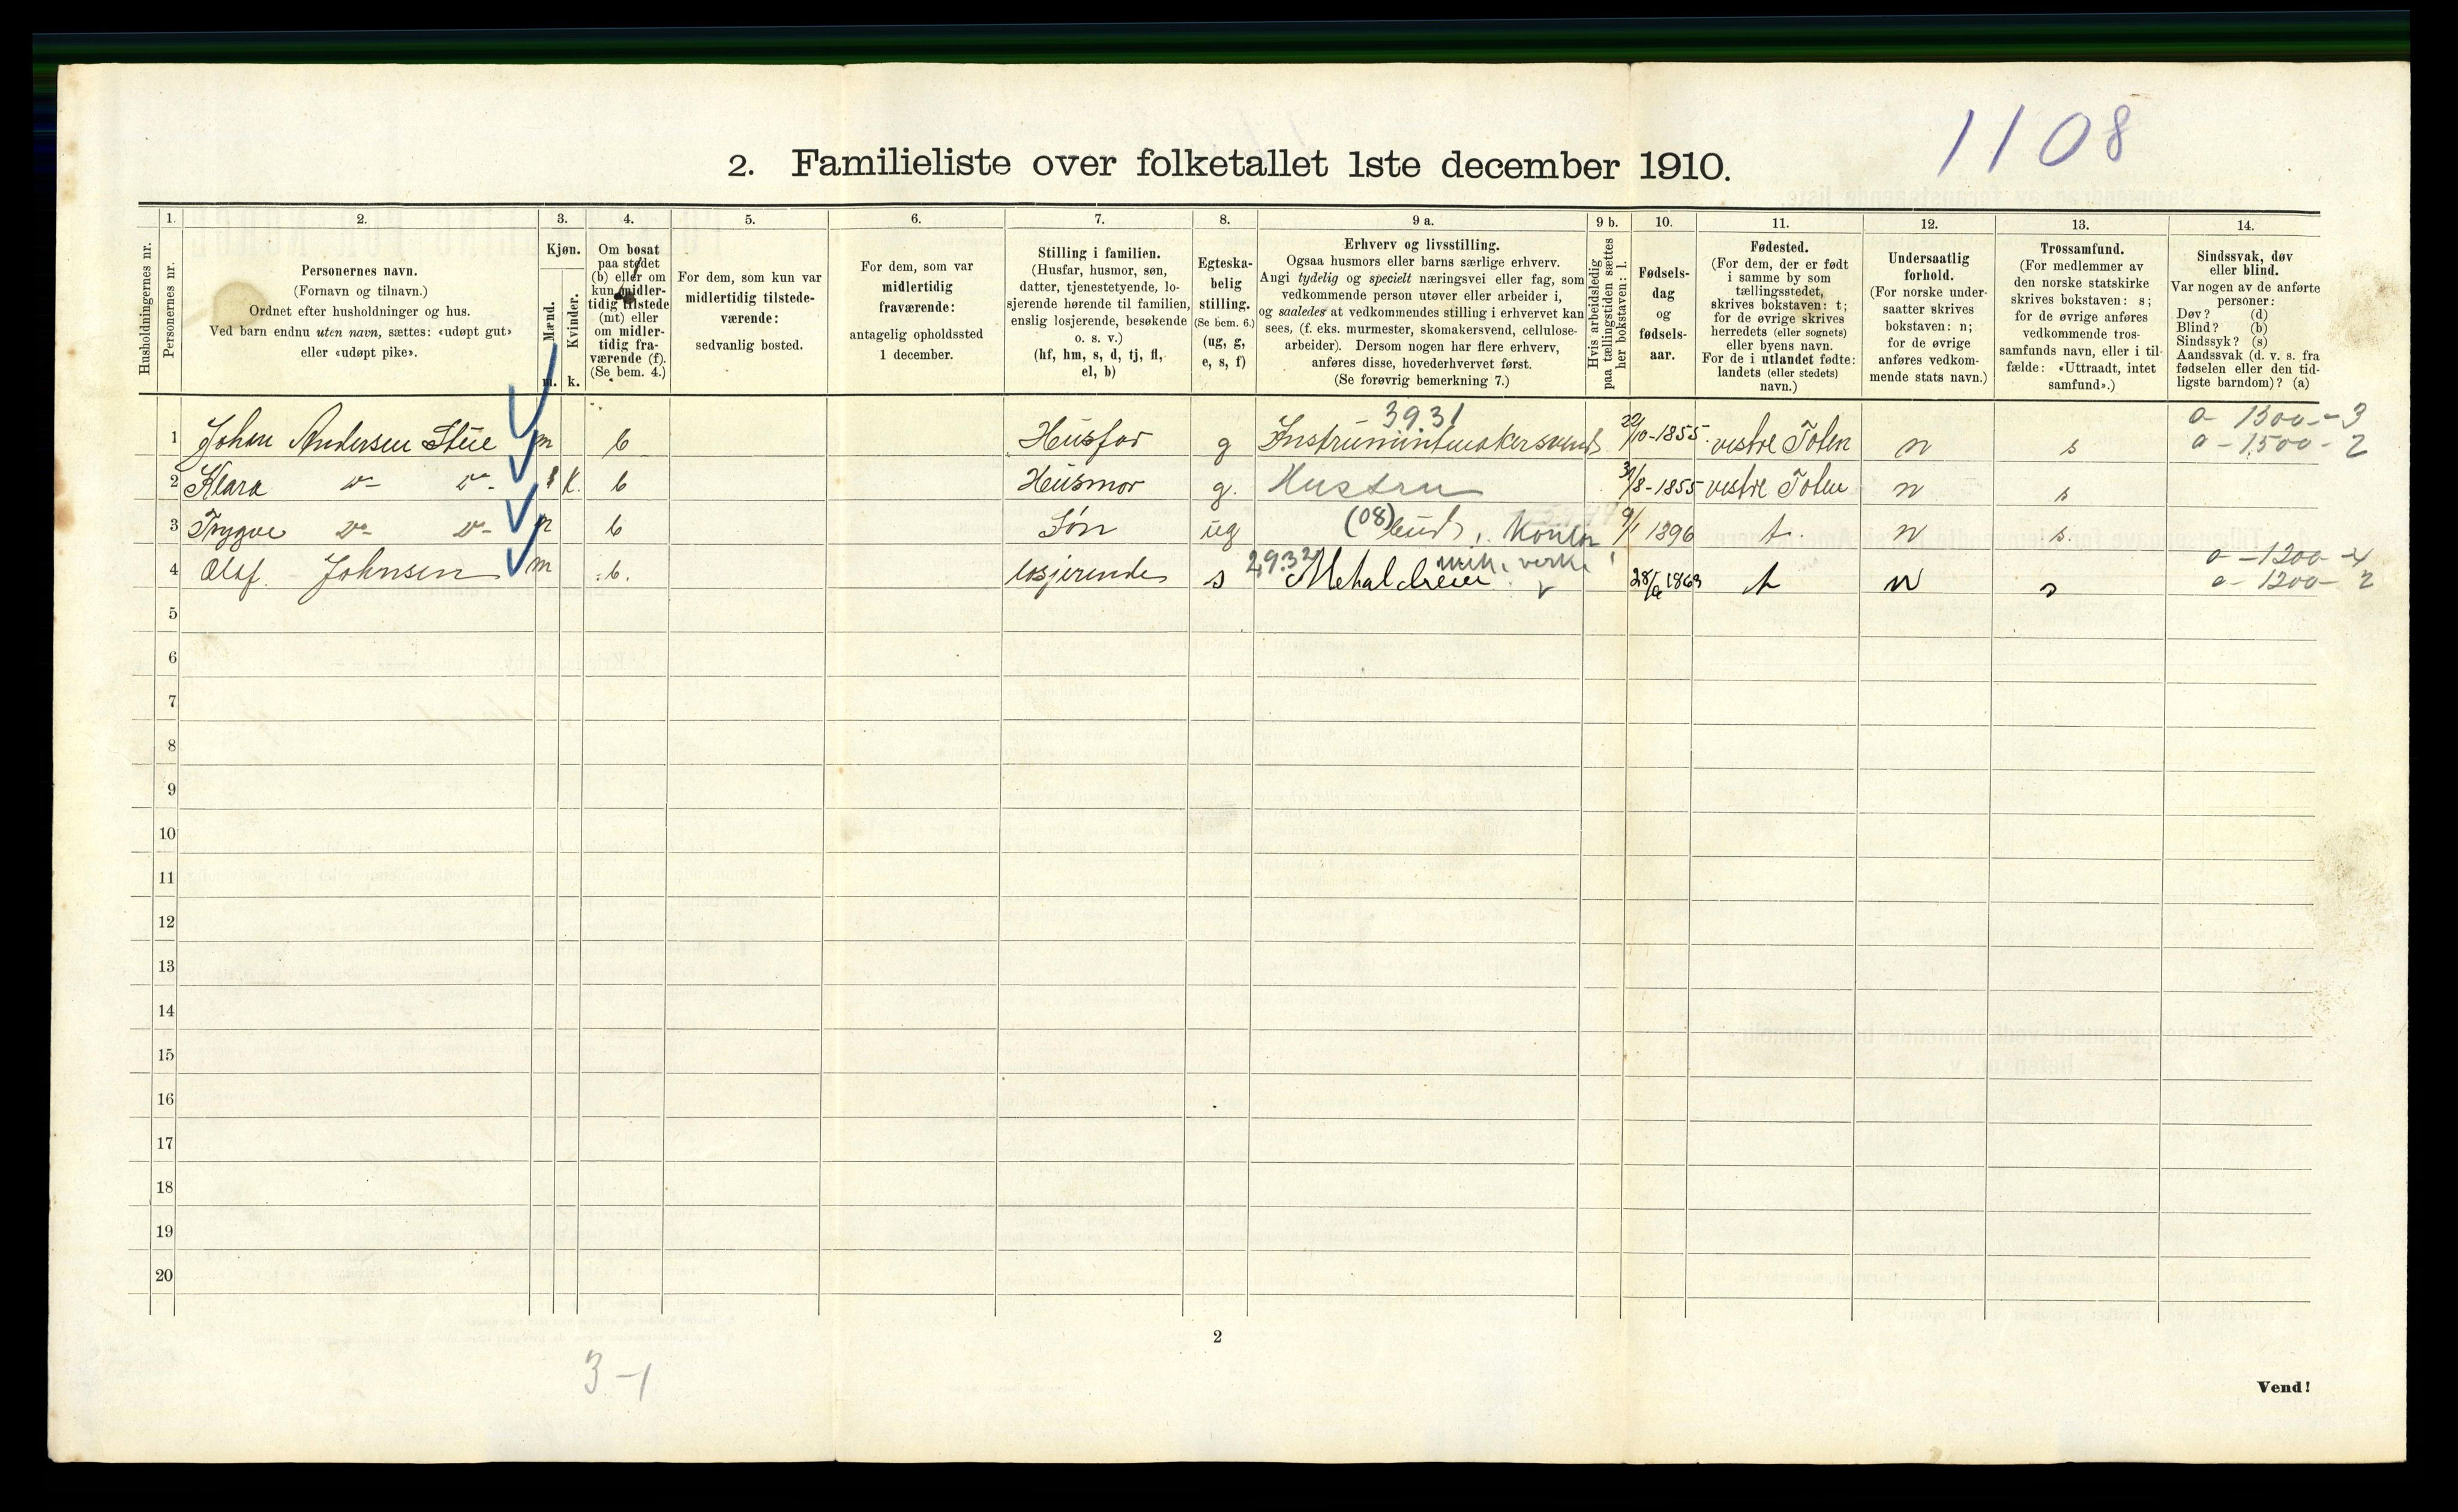 1108
2. Familieliste over folketallet 1ste december 1910.
Husholdningernes nr.
1.
Personernes nr.
2.
Personernes navn.
(Fornavn og tilnavn.)
Ordnet efter husholdninger og hus.
Ved barn endnu uten navn, sættes: «udøpt gut»
eller «udøpt pike».
3.
Kjøn.
Mænd.
m.
Kvinder.
k.
4.
Om bosat
paa stedet
(b) eller om
kun midler-
tidig tilstede
(mt) eller
om midler-
tidig fra-
værende (f).
(Se bem. 4.)
5.
For dem, som kun var
midlertidig tilstede-
værende:
sedvanlig bosted.
6.
For dem, som var
midlertidig
fraværende:
antagelig opholdssted
1 december.
7.
Stilling i familien.
(Husfar, husmor, søn,
datter, tjenestetyende, lo-
sjerende hørende til familien,
enslig losjerende, besøkende
o. s. v.)
(hf, hm, s, d, tj, fl,
el, b)
8.
Egteska-
belig
stilling.
(Se bem. 6.)
(ug, g,
e, s, f)
9 a.
Erhverv og livsstilling.
Ogsaa husmors eller barns særlige erhverv.
Angi tydelig og specielt næringsvei eller fag, som
vedkommende person utøver eller arbeider i,
og saaledes at vedkommendes stilling i erhvervet kan
sees, (f. eks. murmester, skomakersvend, cellulose-
arbeider). Dersom nogen har flere erhverv,
anføres disse, hovederhvervet først.
(Se forøvrig bemerkning 7.)
9 b.
Hvis arbeidsledig
paa tællingstiden sættes
her bokstaven: l.
10.
Fødsels-
dag
og
fødsels-
aar.
11.
Fødested.
(For dem, der er født
i samme by som
tællingsstedet,
skrives bokstaven: t;
for de øvrige skrives
herredets (eller sognets)
eller byens navn.
For de i utlandet fødte:
landets (eller stedets)
navn.)
12.
Undersaatlig
forhold.
(For norske under-
saatter skrives
bokstaven: n;
for de øvrige
anføres vedkom-
mende stats navn.)
13.
Trossamfund.
(For medlemmer av
den norske statskirke
skrives bokstaven: s;
for de øvrige anføres
vedkommende tros-
samfunds navn, eller i til-
fælde: «Uttraadt, intet
samfund».)
14.
Sindssvak, døv
eller blind.
Var nogen av de anførte
personer:
Døv? (d)
Blind? (b)
Sindssyk? (s)
Aandssvak (d. v. s. fra
fødselen eller den tid-
ligste barndom)? (a)
3931 a- 1500 - 3
1 Johan Andersen Stue m b Husfar g Instrumintmakersvend 22/10-1855 vestre Toten n s a - 1500 - 2
2 Klara do- do- k. b Husmor g. Hustru /8-1855 vestre Toten n s
3 Trygve do- do- m b Søn ug (08) bud, Kontor 9/1 1896 t. n s.
2932 mek. verks a - 1200 - 4
4 Olaf Johnsen m b. losjerende s Metaldreier 1863 t n s a - 1200 - 2
5
6
7
8
9
10
11
12
13
14
15
16
17
18
19
20
2
3-1
Vend!